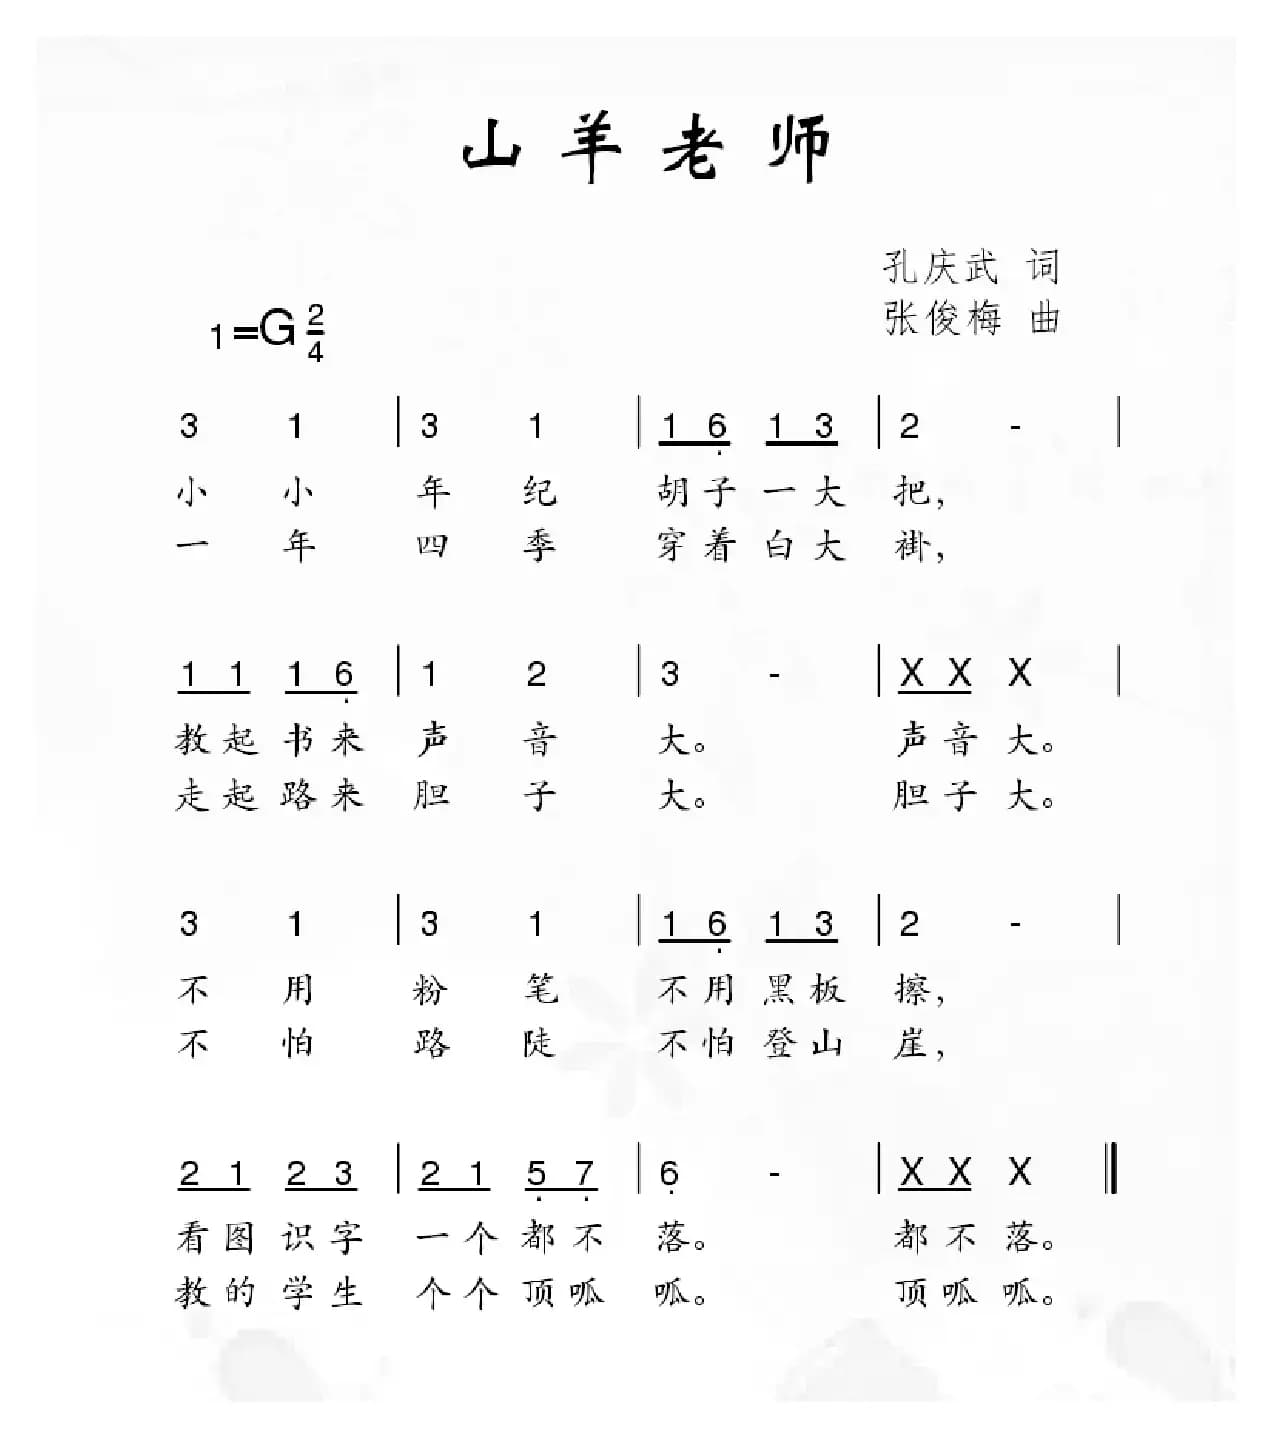 山羊老师
孔庆武 词
张俊梅 曲
1=G 2/4
3 1 | 3 1 | 1 6̣ 1 3 | 2 - |
小 小 年 纪 胡 子 一 大 把，
一 年 四 季 穿 着 白 大 褂，
1 1 1 6̣ | 1 2 | 3 - | X X X |
教 起 书 来 声 音 大。 声 音 大。
走 起 路 来 胆 子 大。 胆 子 大。
3 1 | 3 1 | 1 6̣ 1 3 | 2 - |
不 用 粉 笔 不 用 黑 板 擦，
不 怕 路 陡 不 怕 登 山 崖，
2 1 2 3 | 2 1 5̣ 7̣ | 6̣ - | X X X ‖
看 图 识 字 一 个 都 不 落。 都 不 落。
教 的 学 生 个 个 顶 呱 呱。 顶 呱 呱。